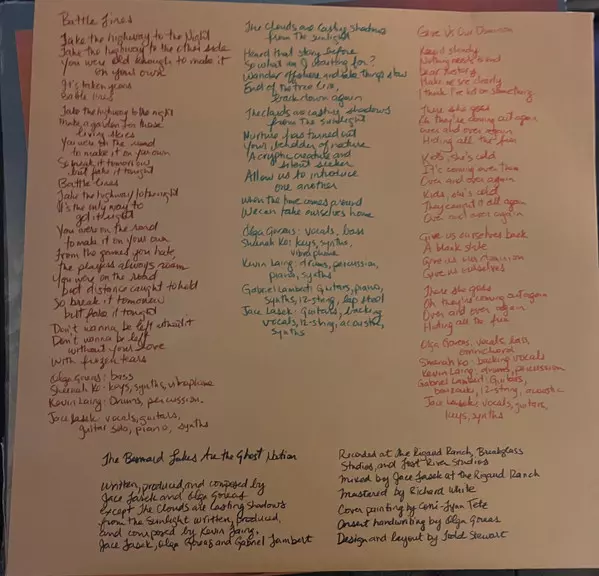 Battle Lines
Take the highway to the Night
Take the highway to the other side
You were old enough to make it
on your own
It's taken years
Battle lines
Take the highway to the night
Make a garden for those
living skies
You were on the road
to make it on your own
So break it tomorrow
but fake it tonight
Battle lines
Take the highway to the night
It's the only way to
get it right
You were on the road
to make it on your own
From the games you hate,
the players always roam
You were on the road
but distance caught to hold
So break it tomorrow
but fake it tonight
Don't wanna be left without it
Don't wanna be left
without your love
with frozen tears
Olga Goreas: bass
Sheenah Ko: keys, synths, vibraphone
Kevin Laing: Drums, percussion.
Jace Lasek: vocals, guitars,
guitar solo, piano, synths
The Clouds are Casting Shadows
from the Sunlight
Heard that story before
So what am I starting for?
Wander offshore and take things slow
End of the tree line,
Track down again
The clouds are casting shadows
from the sunlight
Nurture has turned out
Your beholder of nature
A cryptic creature and
silent seeker
Allow us to introduce
one another
When the time comes around
We can take ourselves home
Olga Goreas: vocals, bass
Sheenah Ko: keys, synths,
vibraphone
Kevin Laing: drums, percussion,
piano, synths
Gabriel Lambert: Guitars, piano,
synths, 12-string, lap steel
Jace Lasek: Guitars, backing
vocals, 12-string, acoustic,
synths
Give Us Our Dominion
Keep it steady
Nothing needs to end
Dear history
Make me see clearly
I think I've hit on something
There she goes
Oh they're coming out again
Over and over again
Hiding all the fun
Kids, she's cold
It's coming over them
Over and over again
Kids, she's cold
They caught it all again
Over and over again
Give us ourselves back
A blank slate
Give us our dominion
Give us ourselves
There she goes
Oh they're coming out again
Over and over again
Hiding all the fun
Olga Goreas: vocals, bass,
omnichord
Sheenah Ko: backing vocals
Kevin Laing: drums, percussion
Gabriel Lambert: Guitars,
bouzouki, 12-string, acoustic
Jace Lasek: vocals, guitars,
keys, synths
The Besnard Lakes Are the Ghost Nation
Written, produced and composed by
Jace Lasek and Olga Goreas
except The Clouds are Casting Shadows
from the Sunlight written, produced,
and composed by Kevin Laing,
Jace Lasek, Olga Goreas and Gabriel Lambert
Recorded at the Rigaud Ranch, Breakglass
Studios, and Lost River Studios
Mixed by Jace Lasek at the Rigaud Ranch
Mastered by Richard White
Cover painting by Corri-Lynn Tetz
Insert handwriting by Olga Goreas
Design and layout by Todd Stewart